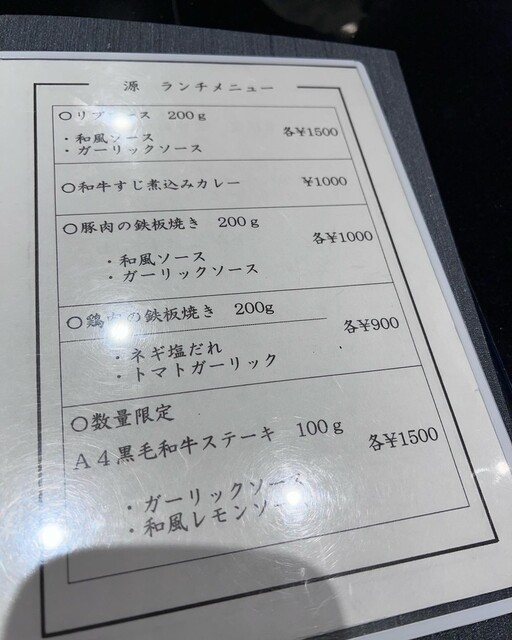 源 ランチメニュー
○リブロース 200g
・和風ソース
・ガーリックソース
各¥1500
○和牛すじ煮込みカレー ¥1000
○豚肉の鉄板焼き 200g
各¥1000
・和風ソース
・ガーリックソース
○鶏肉の鉄板焼き 200g
各¥900
・ネギ塩だれ
・トマトガーリック
○数量限定
A4黒毛和牛ステーキ 100g
各¥1500
・ガーリックソース
・和風レモンソース